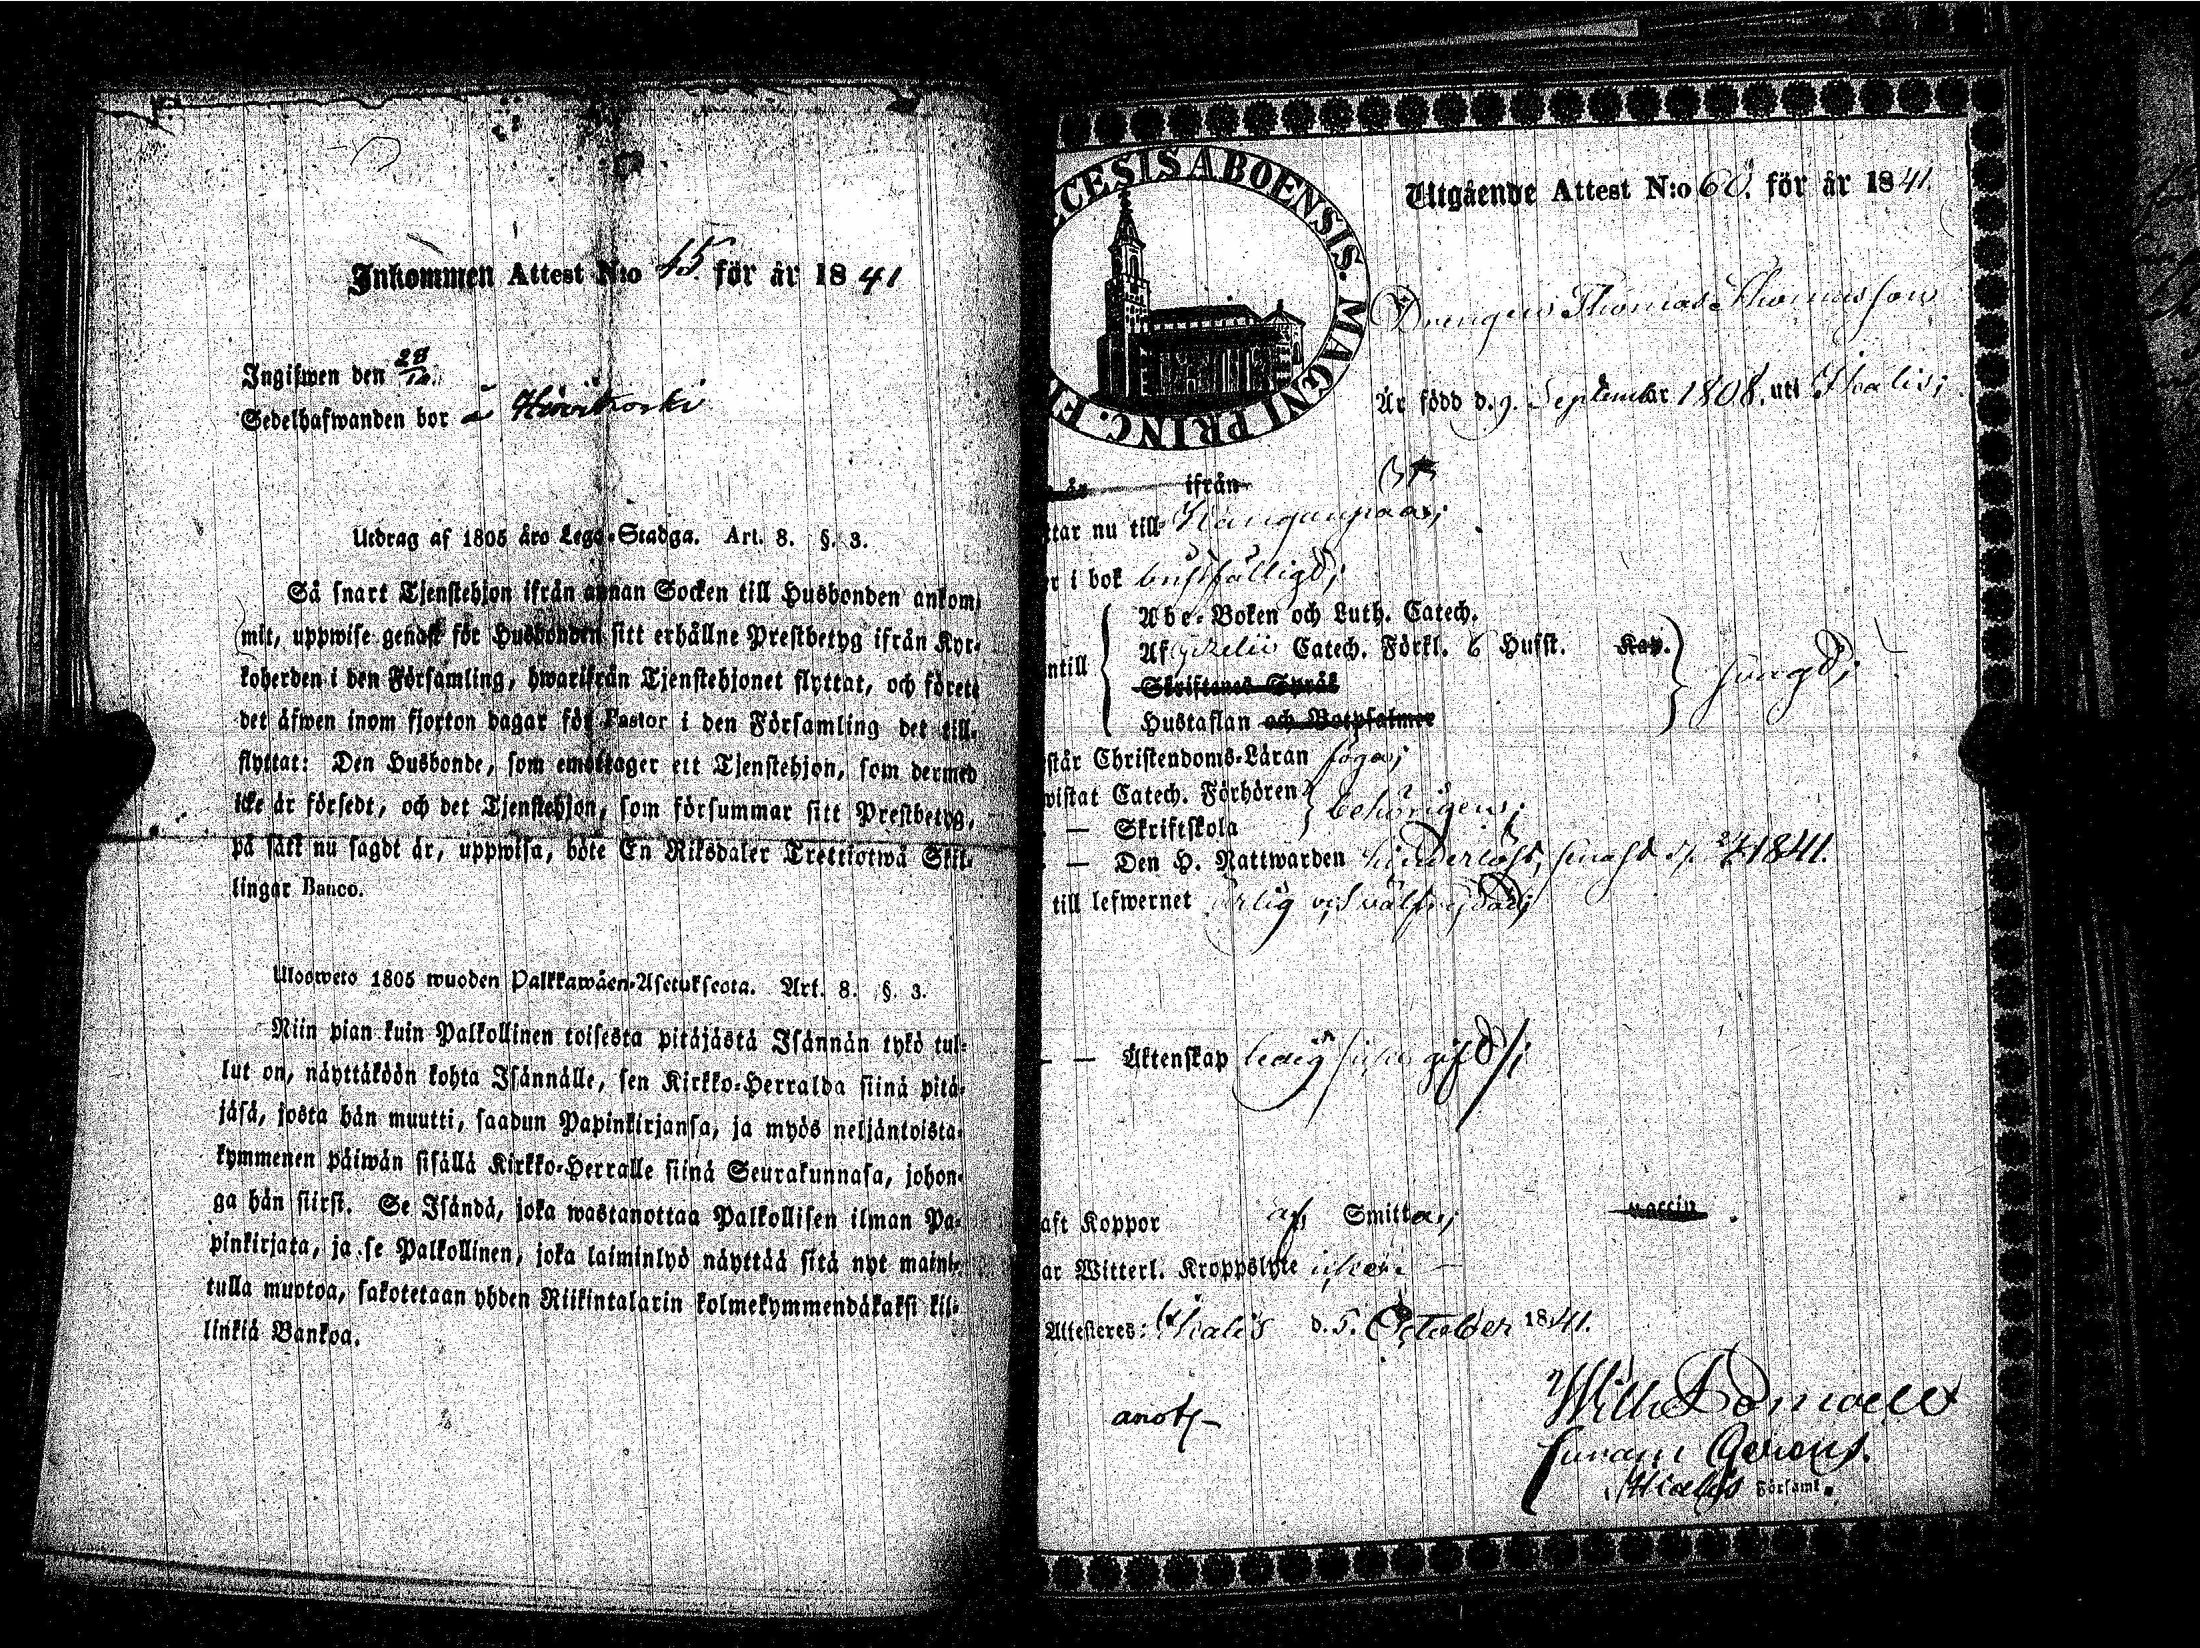 Inkommen Attest N:o 45 för år 1841
Ingifwen den 28/12.
Sedelhafwanden bor
Utdrag af 1805 års Lego-Stadga. Art. 8. §. 3.
Så snart Tjenstehjon ifrån annan Socken till Husbonden ankom-
mit, uppwise genast för Husbonden sitt erhållne Prestbetyg ifrån Kyr-
koherden i den Församling, hwarifrån Tjenstehjonet flyttat, och förete
det äfwen inom fjorton dagar för Pastor i den Församling det till-
flyttat: Den Husbonde, som emottager ett Tjenstehjon, som dermed
icke är försedt, och det Tjenstehjon, som försummar sitt Prestbetyg,
på sätt nu sagdt är, uppwisa, böte En Riksdaler Trettiotwå Skil-
lingar Banco.
Ulosweto 1805 wuoden Palkkawäen-Asetuksesta. Art. 8. §. 3.
Niin pian kuin Palkollinen toisesta pitäjästä Isännän tykö tul-
lut on, näyttäköön kohta Isännälle, sen Kirkko-Herralda siinä pitä-
jäsä, josta hän muutti, saadun Papinkirjansa, ja myös neljäntoista-
kymmenen päiwän sisällä Kirkko-Herralle siinä Seurakunnasa, johon-
ga hän siirsi. Se Isändä, joka wastanottaa Palkollisen ilman Pa-
pinkirjata, ja se Palkollinen, joka laiminlyö näyttää sitä nyt maini-
tulla muotoa, sakotetaan yhden Riikintalarin kolmekymmendäkaksi kil-
linkiä Bankoa.
CESIS ABOENSIS. MAGNI PRINC. FI
Utgående Attest N:o 60. för år 1841.
Drengen Thomas Thomasson
Är född d. 9. September 1808. uti Ikalis;
ifrån
tar nu till Kangunpää;
r i bok
Abc-Boken och Luth. Catech.
ntill Af Gezelii Catech. Förkl. 6 Hufst. Kap.
Skriftenes Språk
Hustaflan och Botpsalmer
står Christendoms-Läran föga;
wistat Catech. Förhören behörigen;
— Skriftskola
— Den H. Nattwarden hinderlöst, senast d. 1841.
till lefwernet ärlig och välfrejdad;
— Äktenskap ledig
aft Koppor af Smitta; vaccin.
ar Witterl. Kroppslyte icke:
Attesteres: Ikalis d. 5. October 1841.
anot/-
Ikalis Församl.